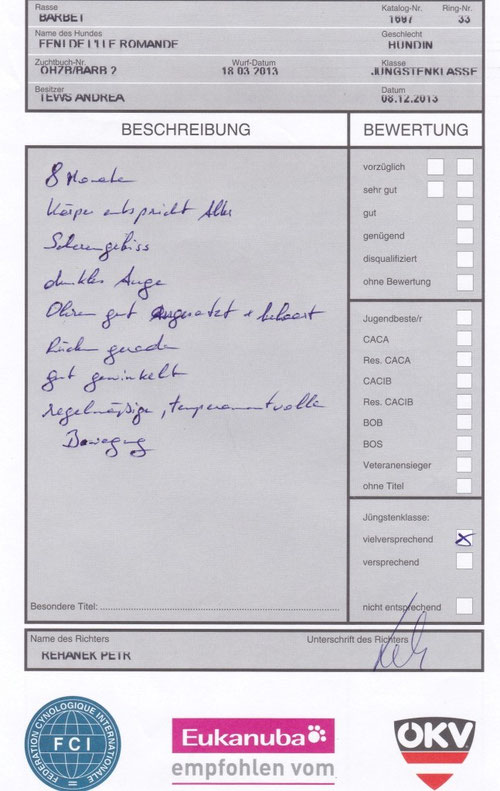 Rasse Katalog-Nr. Ring-Nr.
BARBET 1697 33
Name des Hundes Geschlecht
FENI DE L'ILE ROMANDE HÜNDIN
Zuchtbuch-Nr. Wurf-Datum Klasse
ÖHZB/BARB 2 18 03 2013 JÜNGSTENKLASSE
Besitzer Datum
TEWS ANDREA 08.12.2013
BESCHREIBUNG BEWERTUNG
8 Monate
Körper entspricht Alter
Scherengebiss
dunkles Auge
Ohren gut angesetzt + behaart
Rücken gerade
gut gewinkelt
regelmäßige, temperamentvolle
Bewegung
vorzüglich
sehr gut
gut
genügend
disqualifiziert
ohne Bewertung
Jugendbeste/r
CACA
Res. CACA
CACIB
Res. CACIB
BOB
BOS
Veteranensieger
ohne Titel
Jüngstenklasse:
vielversprechend
versprechend
nicht entsprechend
Besondere Titel:
Name des Richters Unterschrift des Richters
REHANEK PETR
FEDERATION CYNOLOGIQUE INTERNATIONALE
FCI
Eukanuba
empfohlen vom
ÖKV